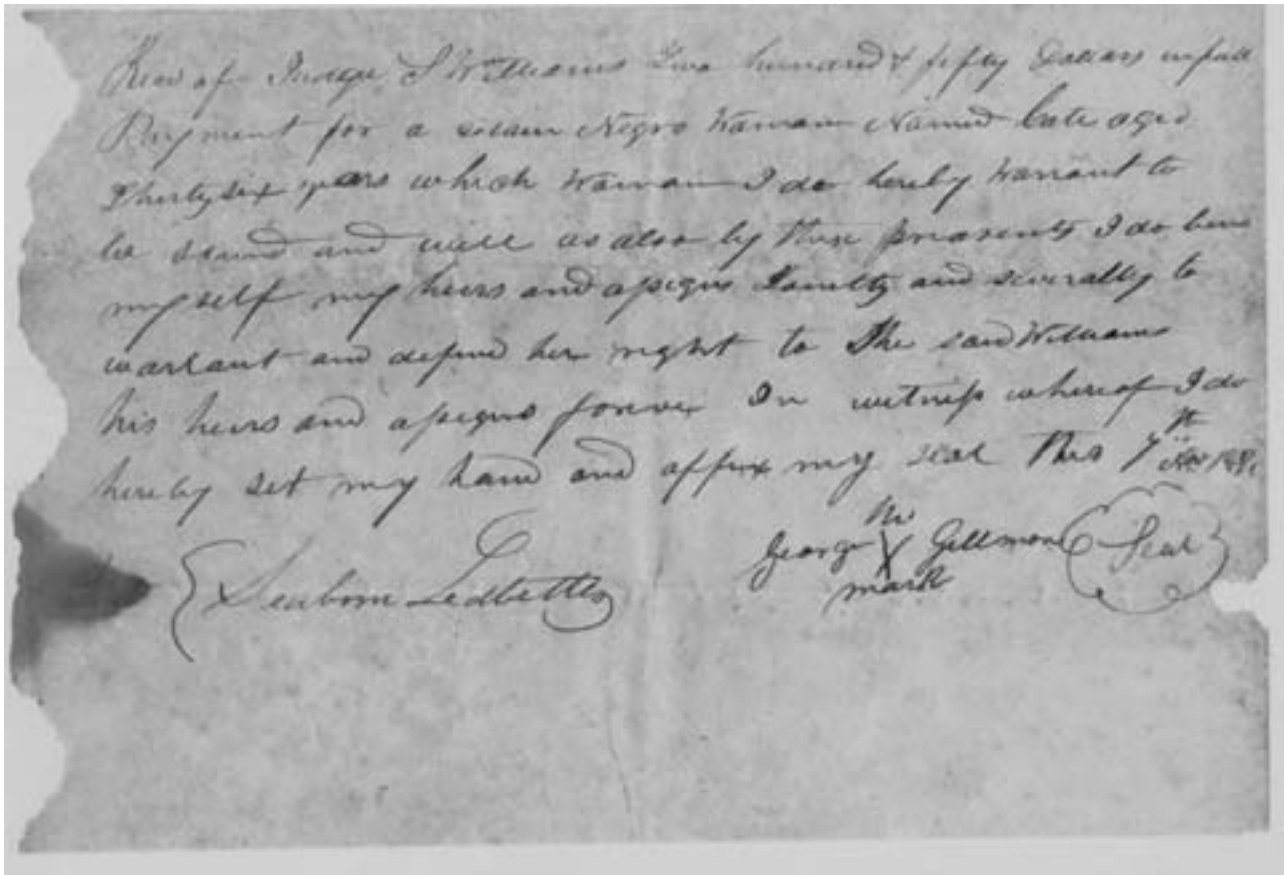 Recd of Judge S Williams Two hundred & fifty Dollars in full
Payment for a certain Negro Woman Named Cate aged
Thirty six years which Woman I do hereby warrant to
be sound and well as also by these presents I do bind
my self my heirs and assigns Jointly and severally to
warrant and defend her right to the said Williams
his heirs and assigns forever In witness whereof I do
hereby set my hand and affix my seal this 7th
his
George X Gillmon Seal
mark
Seaborn Ledbetter